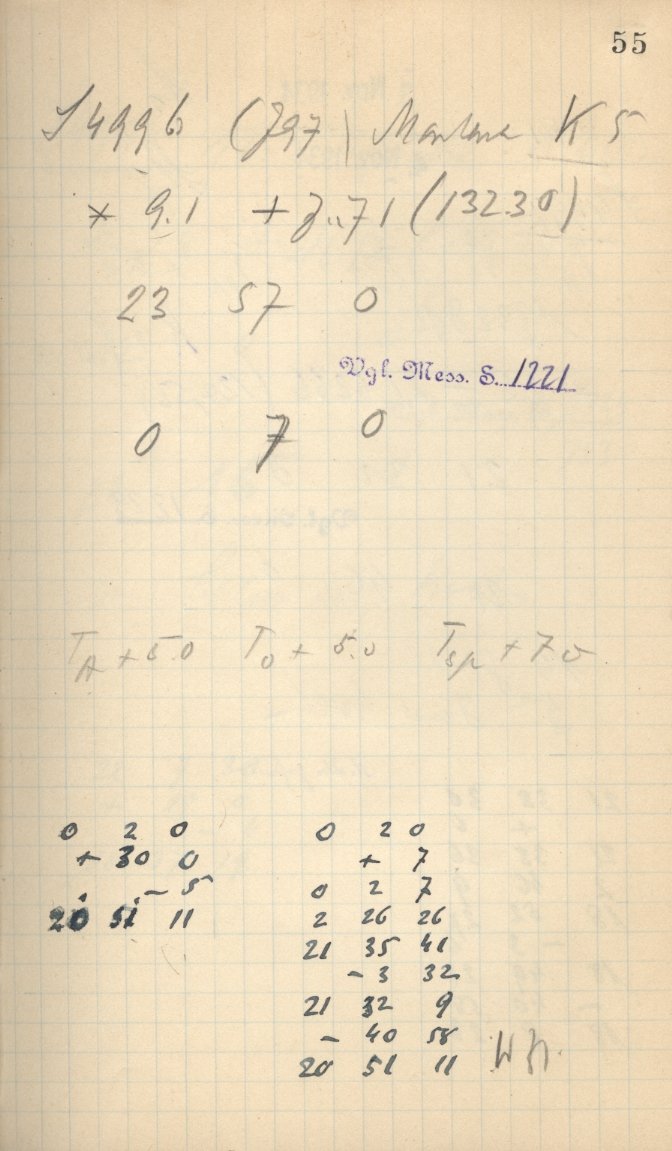 55
J 4996 (J97) Montana K 5
* 9.1 + J..71 (132.30)
23 57 0
Vgl. Mess. S. 1221
0 7 0
T_A + 5.0 T_0 + 5.0 T_sp + 7.0
0 2 0
+ 30 0
- 5
20 51 11
0 2 0
+ 7
0 2 7
2 26 26
21 35 41
- 3 32
21 32 9
- 40 58
20 51 11